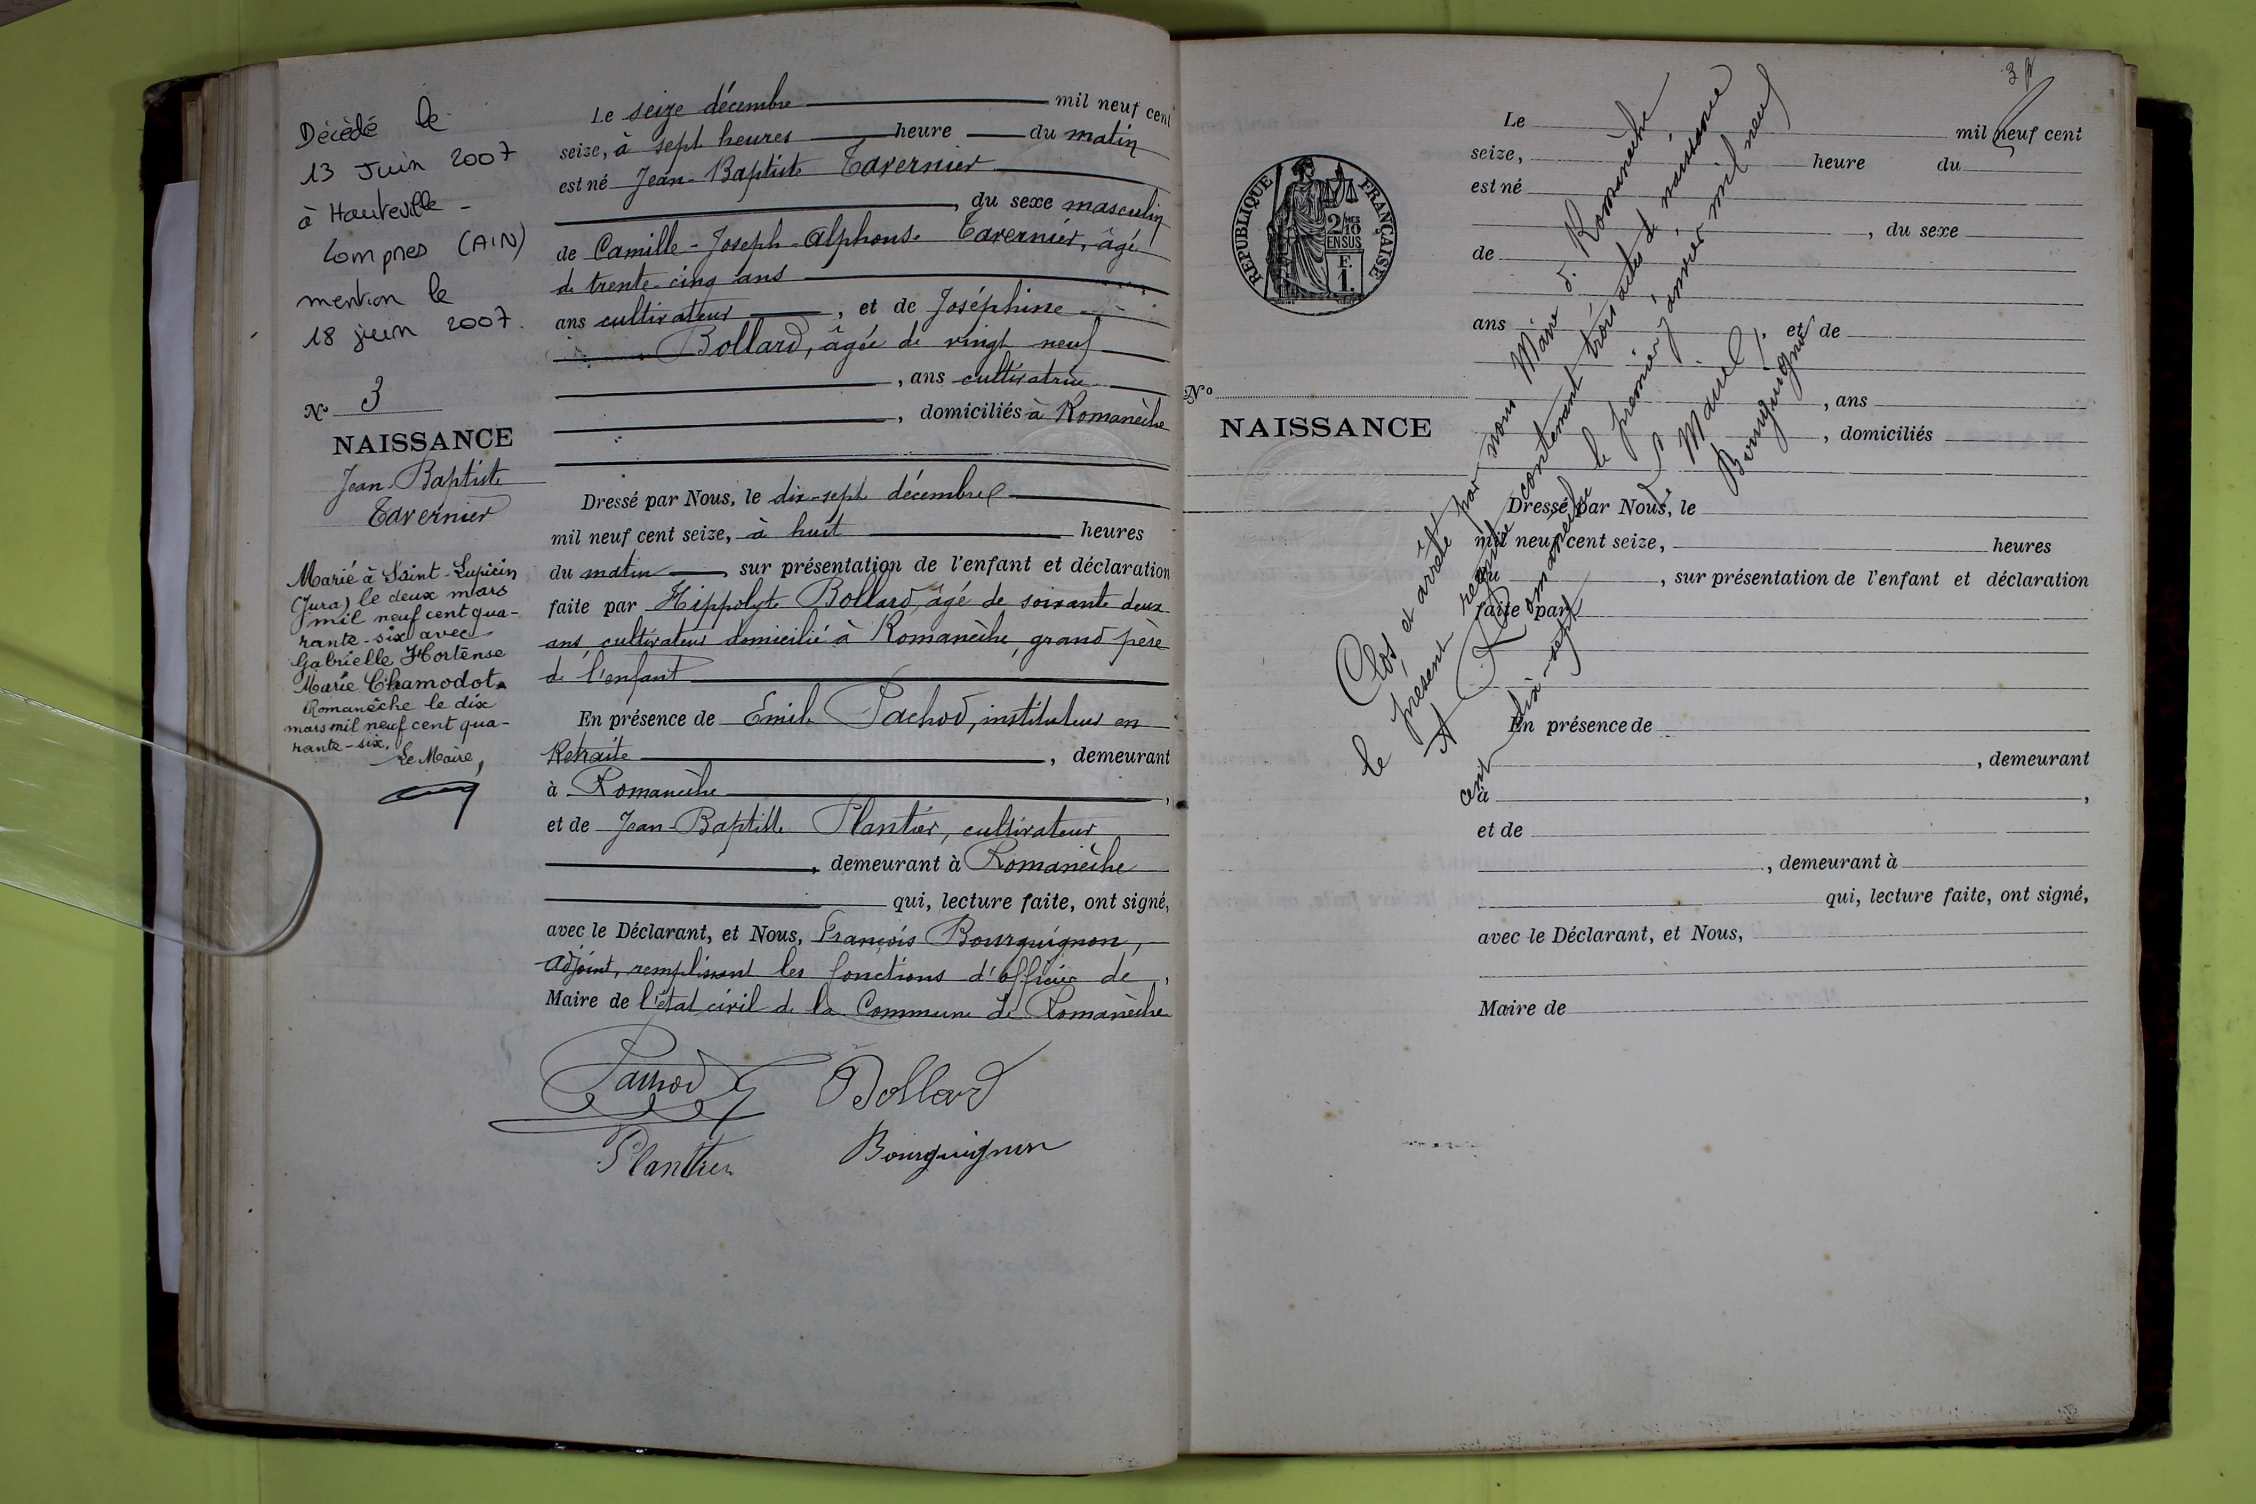 Décédé le
13 Juin 2007
à Hauteville -
Lompnes (AIN)
mention le
18 juin 2007.
No 3
NAISSANCE
Jean-Baptiste
Tavernier
Marié à Saint-Lupicin
(Jura) le deux mars
mil neuf cent qua-
rante-six avec
Gabrielle Hortense
Marie Chamodot.
Romanèche le dix
mars mil neuf cent qua-
rante-six.
Le Maire,
Le seize décembre mil neuf cent
seize, à sept heures heure du matin
est né Jean-Baptiste Tavernier
, du sexe masculin
de Camille-Joseph-Alphonse Tavernier, âgé
de trente-cinq ans
ans cultivateur , et de Joséphine
Bollard, âgée de vingt neuf
, ans cultivatrice
, domiciliés à Romanèche
Dressé par Nous, le dix-sept décembre
mil neuf cent seize, à huit heures
du matin , sur présentation de l'enfant et déclaration
faite par Hippolyte Bollard, âgé de soixante deux
ans, cultivateur domicilié à Romanèche, grand père
de l'enfant
En présence de Emile Pachod, instituteur en
Retraite , demeurant
à Romanèche ,
et de Jean-Baptiste Plantier, cultivateur
, demeurant à Romanèche
qui, lecture faite, ont signé,
avec le Déclarant, et Nous, François Bourguignon,
adjoint, remplissant les fonctions d'officier de ,
Maire de l'état civil de la Commune de Romanèche
Pachod Bollard
Plantier Bourguignon
REPUBLIQUE FRANÇAISE
2/10 EN SUS
F. 1.
No
NAISSANCE
Le mil neuf cent
seize, heure du
est né
, du sexe
de
ans et de
, ans
, domiciliés
Dressé par Nous, le
mil neuf cent seize, heures
du , sur présentation de l'enfant et déclaration
faite par
En présence de
, demeurant
à ,
et de
, demeurant à
qui, lecture faite, ont signé,
avec le Déclarant, et Nous,
Maire de
Clos et arrêté par nous Maire de Romanèche
le présent registre contenant trois actes de naissance
A Romanèche le premier janvier mil neuf
cent dix-sept
Bourguignon